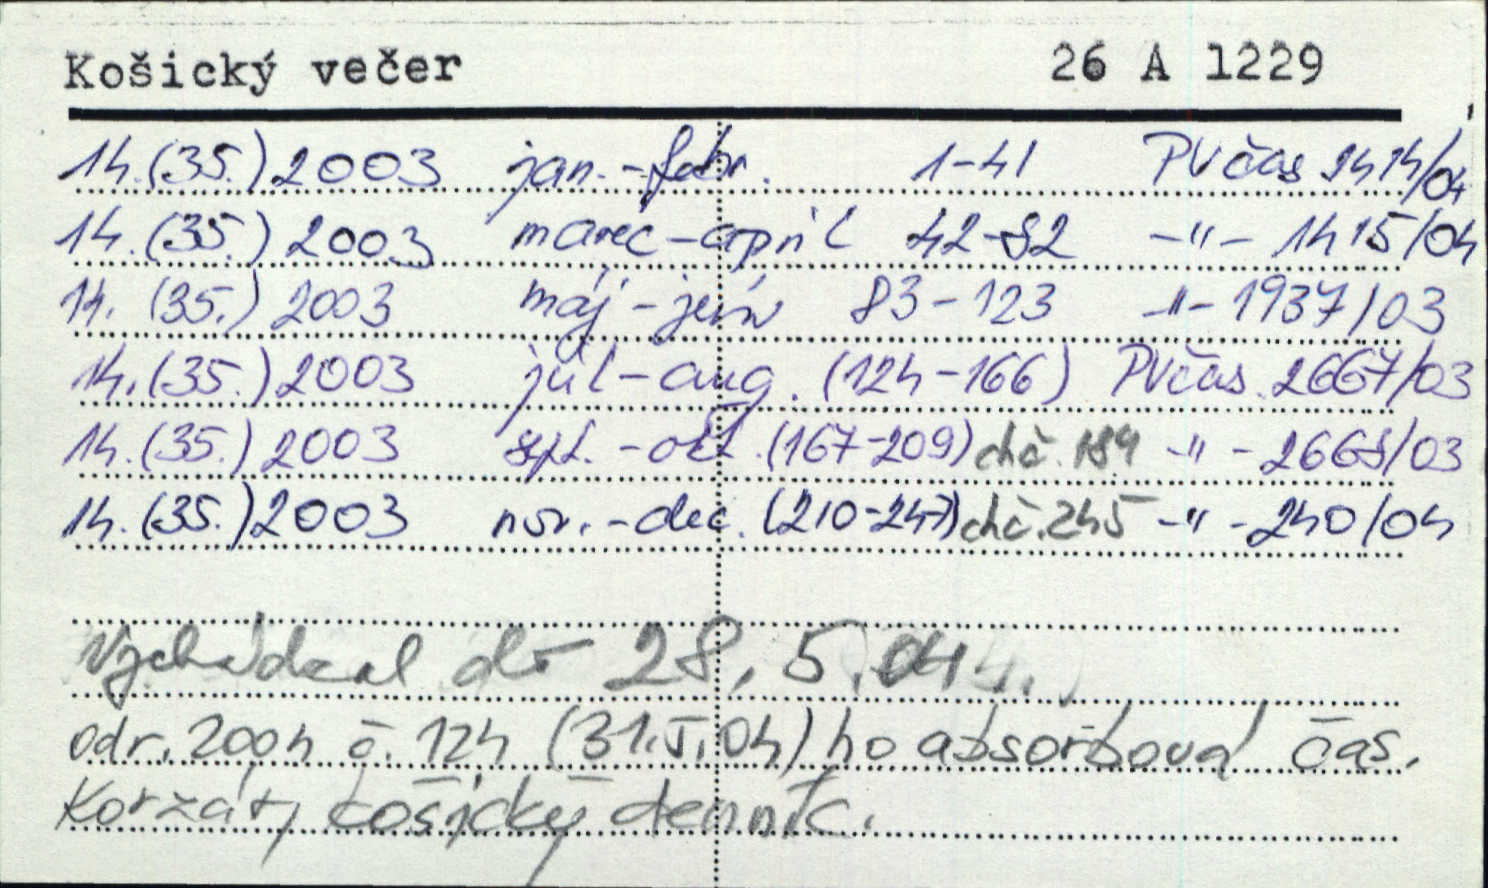 Košický večer 26 A 1229
14.(35.) 2003 jan.-febr. 1-41 PVčas 1414/04
14.(35.) 2003 marec-apríl 42-82 -"- 1415/04
14. (35.) 2003 máj-jún 83-123 -"- 1937/03
14.(35.) 2003 júl-aug. (124-166) PVčas. 2667/03
14.(35.) 2003 sept.-okt. (167-209) chč. 189 -"- 2668/03
14.(35.) 2003 nov.-dec. (210-247) chč. 245 -"- 240/04
Vychádzal do 28. 5. 04
odr. 2004 č. 124 (31.V.04) ho absorboval čas.
Korzár, košický denník.